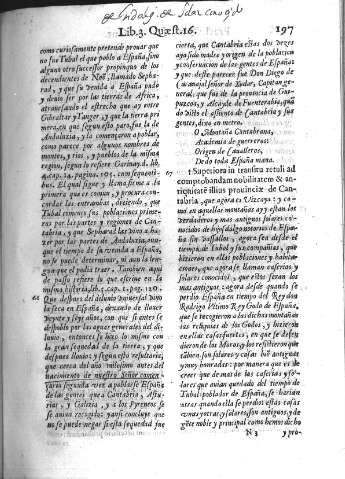 Lib.3. Quæst.16.
197
como curiosamente pretende prouar que
no fue Tubal el que poblo a España, sino
algun otro successor propinquo de los
decendientes de Noe, llamado Sepha-
rad, y que su venida a España pudo
y deuio ser por las tierras de Africa,
atrauessando el estrecho que ay entre
Gibraltar y Tanger, y que la tierra pri-
mera, en que segun esto paro, fue la de
Andaluzia, y la començaron a poblar,
como parece por algunos nombres de
montes, y rios, y pueblos de la misma
region, segun lo refiere Garibay d. lib.
4. cap. 24. pagin. 101. cum sequenti-
bus. El qual sigue y llama
primera que es comun, y procura con-
cordar las entrambas, diziendo, que
Tubal començo sus poblaciones prime-
ro por las partes y regiones de Can-
tabria, y que Sepharad las vino a ha-
zer por las partes de Andaluzia, aun-
que el tiempo de su venida a España,
no se puede determinar, ni aun la len-
gua que el podia traer. Tambien aqui
de passo refiere lo que escriue en la
misma historia lib. cap.
66 Que despues del diluuio vniuersal vino
la seca en España, dexando de llouer
veynte y seys años, con que si antes se
despoblo por las aguas generales del di-
luuio, entonces se hizo lo mismo con
la gran sequedad de la tierra, y que
despues llouio: y segun esto resultaria,
que cerca del año millesimo antes del
nacimiento de nuestro Señor comen-
segunda vez a poblarse España
de las gentes que a Cantabria, Astu-
rias, y Galizia, y a los Pyreneos se
se auian recogido: y assi concluye que
no se puede negar si esta sequedad fue
cierta, que Cantabria estas dos vezes
aya sido madre y origen de la poblacion
y conseruacion de las gentes de España,
y que deste parecer fue Don Diego de
Carauajal señor de Xodar, Capitan ge-
neral, que fue de la prouincia de Gui-
puzcoa, y Alcayde de Fuenterabia, qua-
do dixo el assiento de Cantabria y sus
gentes, dixo en metro.
O Montaña Cantabrana,
Academia de guerreros:
Origen de Caualleros,
De do toda España mana.
67 Superiora in transitu retuli ad
comprobandam nobilitatem & an-
tiquitatẽ illius prouinciæ de Can-
tabria, que agora es Vizcaya: y co-
mo en aquellas montañas ay y estan los
verdaderos y mas antiguos solares cono-
cidos de hijosdalgo notorios de España
sin vassallos, agora sea desde el
tiempo de Tubal y sus compañias, que
hizieron en ellas poblaciones y habita-
ciones, que agora se llaman caserios y
solares conocidos, que estos seran los
mas antiguos: agora desde quando se
perdio España en tiempo del Rey don
Rodrigo Vltimo Rey Godo de España,
que se recogieron a los dichos montañas
las reliquias de los Godos, y hizieron
en ellas casas fuertes, en que se defen-
dieron de los Moros, y los resistieron que
tãbien son solares y casas bien antiguas
y muy honradas: por manera que es de
creer que de mas de las caserias y so-
lares que auian quedado del tiempo de
Tubal poblador de España, se harian
otras quando ella se perdio: estas casas
y otras y solares, son antiguos, y de
gẽte noble y principal como hemos di-ho
N 3
y pro-